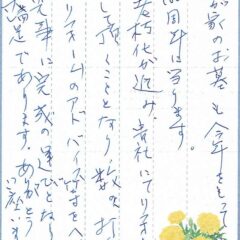 が家のお墓も今年をもって
周年に当ります。
老朽化が進み、貴社にてリフォー
して頂くことになり、数々の打
リフォームのアドバイス等をへ
事に完成の運びとな
満足であります。ありがとう